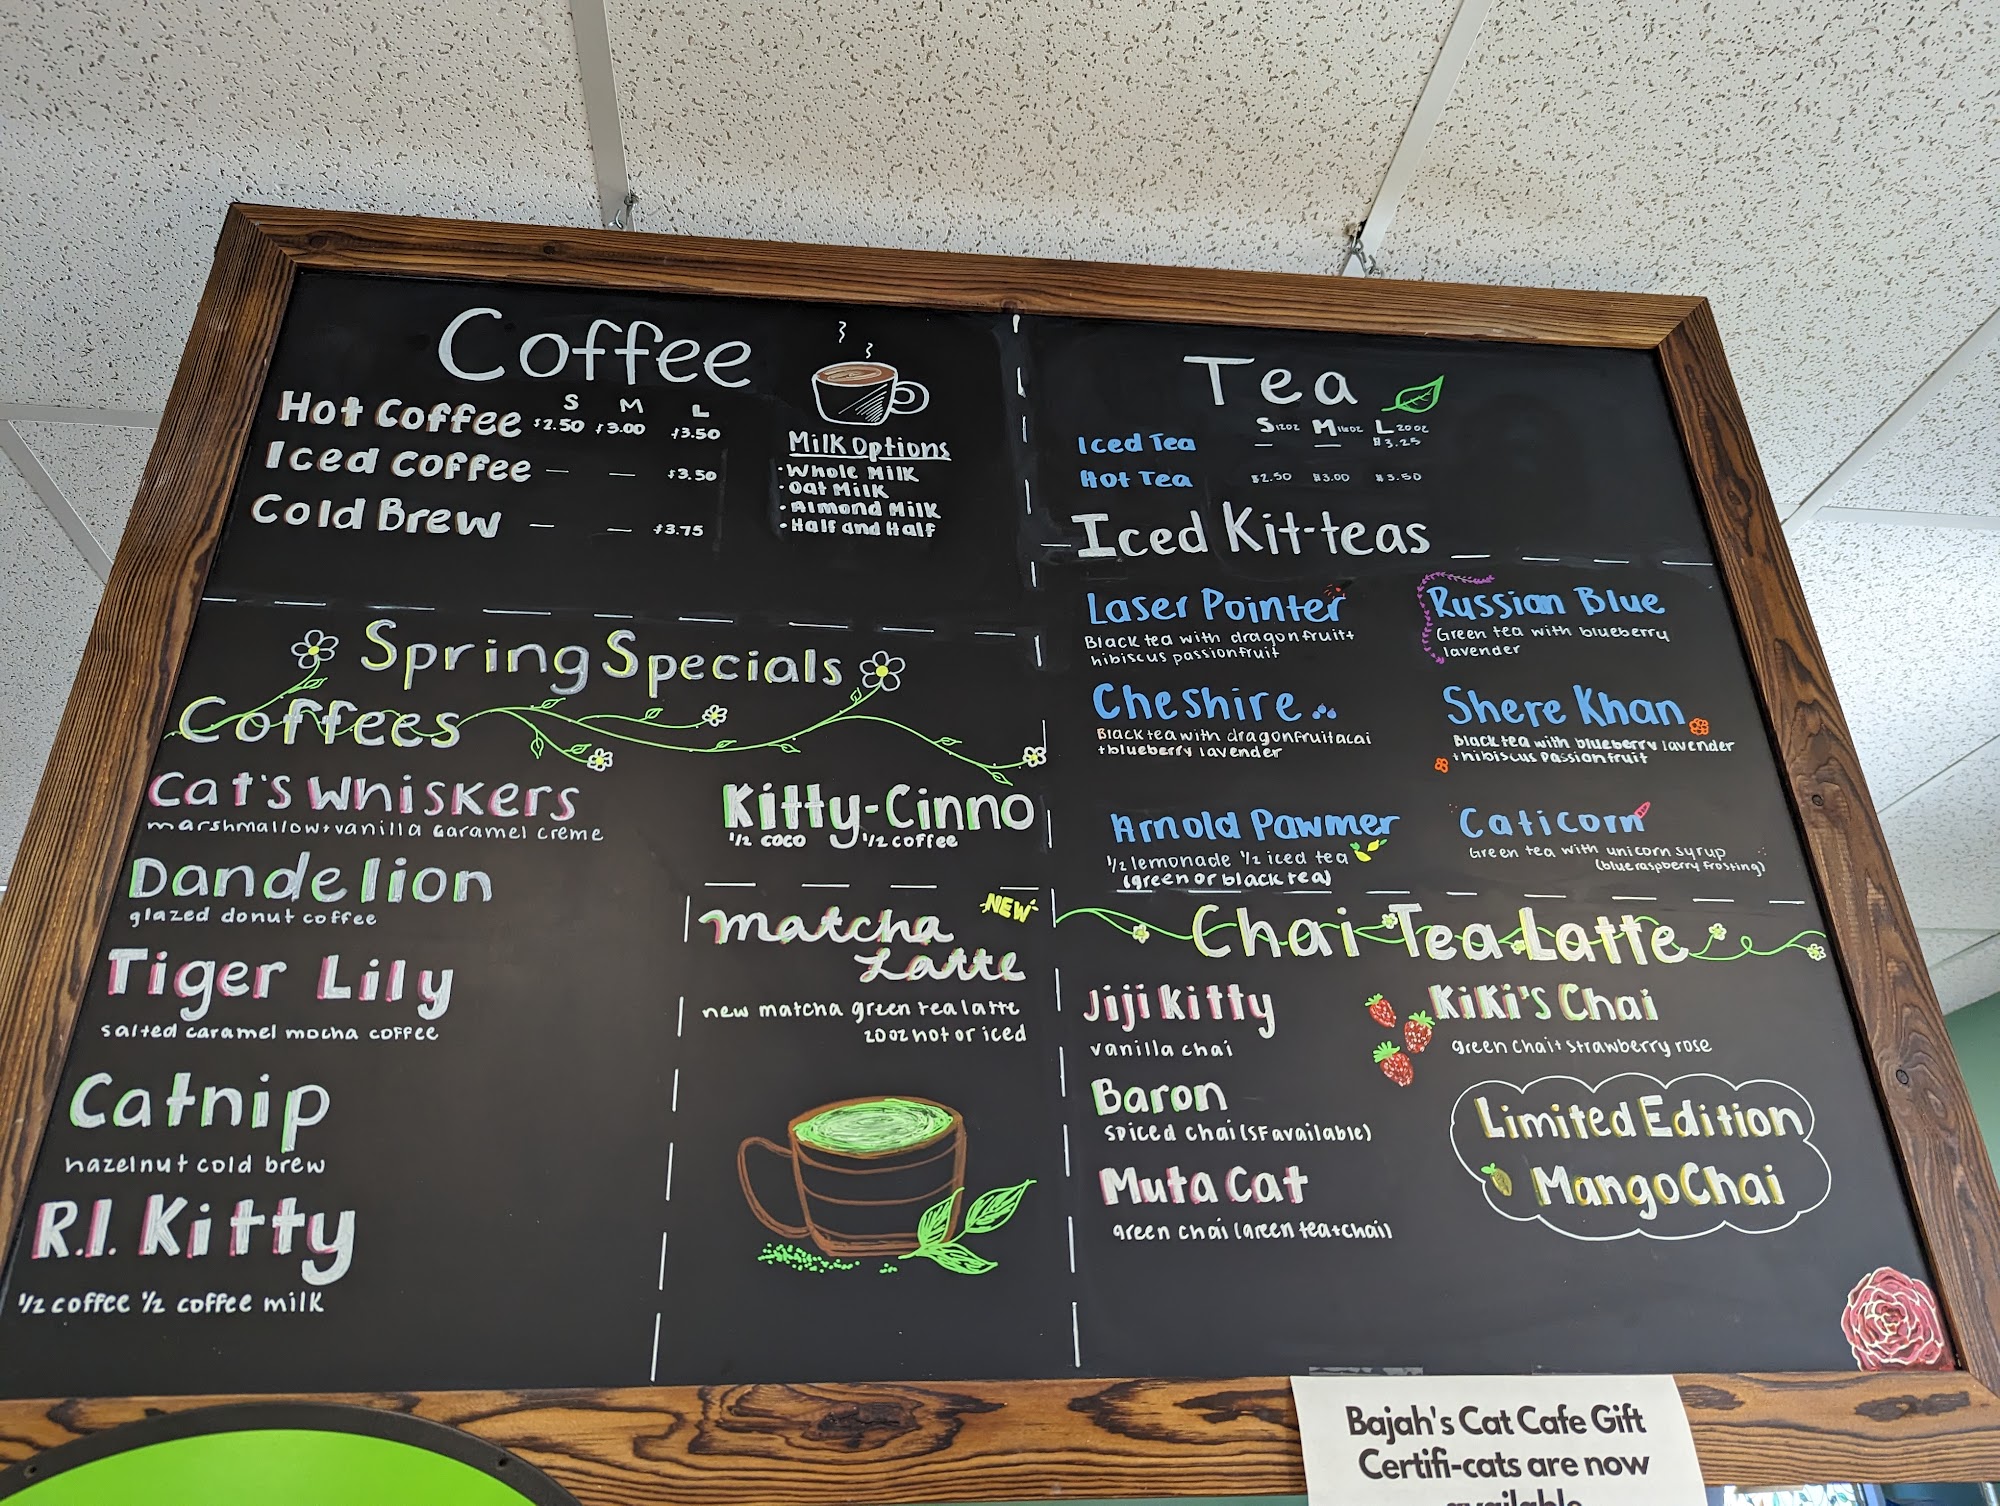 Coffee
S M L
Hot Coffee $2.50 $3.00 $3.50
Iced Coffee — — $3.50
Cold Brew — — $3.75
Milk Options
• Whole Milk
• Oat Milk
• Almond Milk
• Half and Half
Spring Specials
Coffees
Cat's Whiskers
marshmallow+vanilla caramel creme
Dandelion
glazed donut coffee
Tiger Lily
salted caramel mocha coffee
Catnip
hazelnut cold brew
R.I. Kitty
1/2 coffee 1/2 coffee milk
Kitty-Cinno
1/2 coco 1/2 coffee
NEW
Matcha
Latte
new matcha green tea latte
20oz hot or iced
Tea
S 12oz M 16oz L 20oz
Iced Tea — — $3.25
Hot Tea $2.50 $3.00 $3.50
Iced Kit-teas
Laser Pointer
Black tea with dragonfruit+
hibiscus passionfruit
Russian Blue
Green tea with blueberry
lavender
Cheshire
Black tea with dragonfruitacai
+blueberry lavender
Shere Khan
Black tea with blueberry lavender
+hibiscus passionfruit
Arnold Pawmer
1/2 lemonade 1/2 iced tea
(green or black tea)
Caticorn
Green tea with unicorn syrup
(blue raspberry frosting)
Chai Tea Latte
Jiji Kitty
vanilla chai
Kiki's Chai
green chai+ strawberry rose
Baron
spiced chai (SF available)
Muta Cat
green chai (green tea+chai)
Limited Edition
Mango Chai
Bajah's Cat Cafe Gift
Certifi-cats are now
available